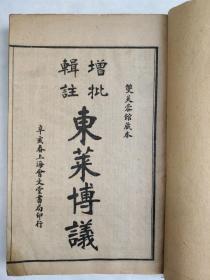 雙芙蓉館藏本
增批
輯註
東萊博議
辛亥春上海會文堂書局印行